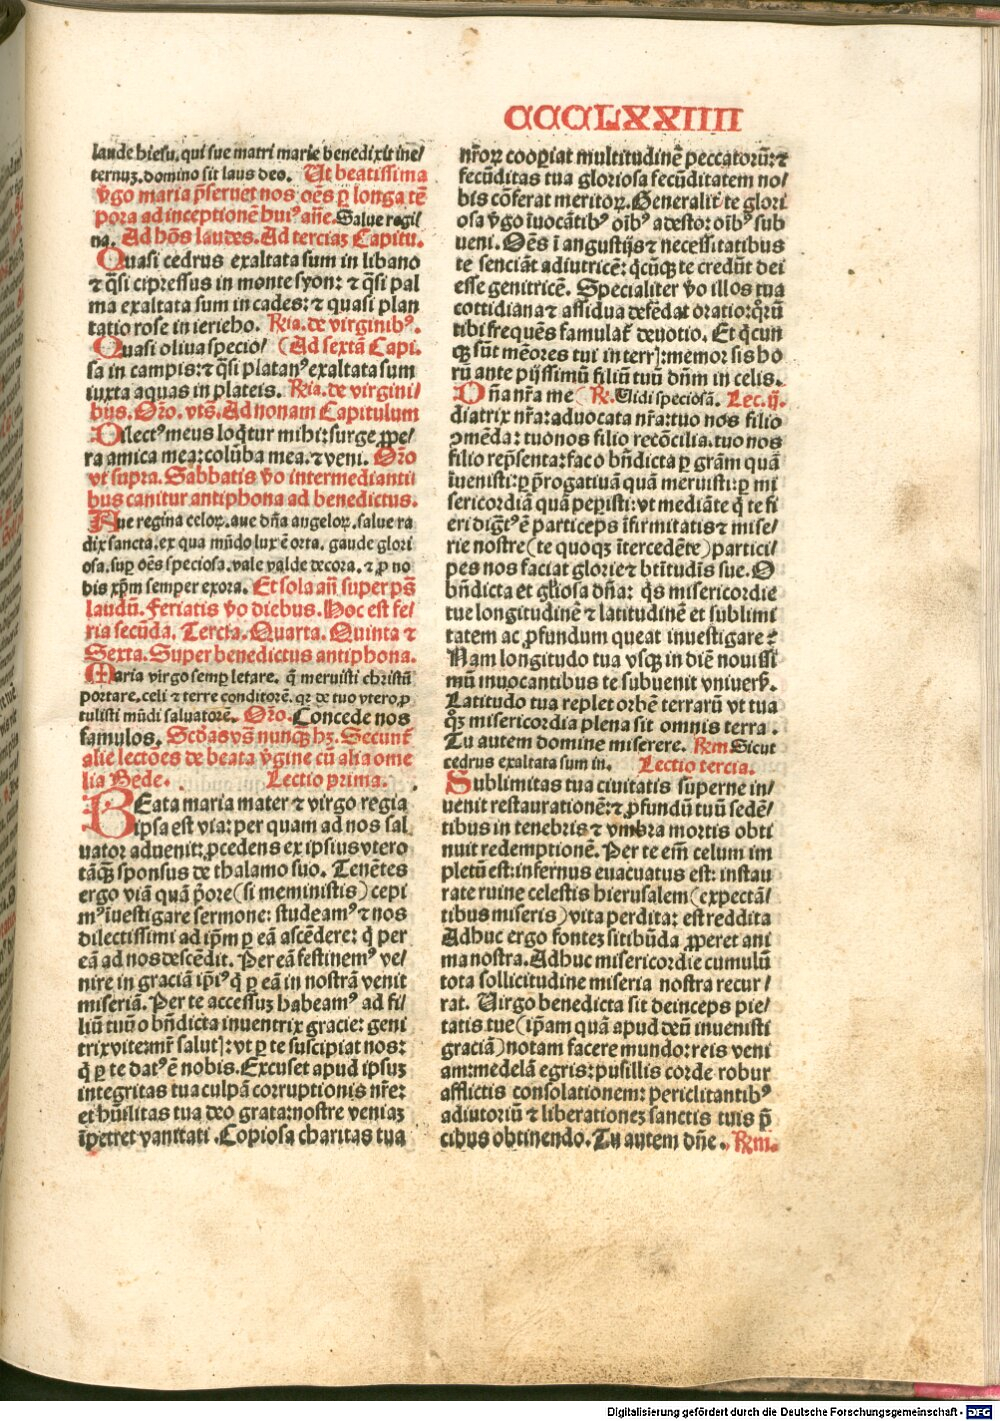 CCCLXXIIII
laude hiesu. qui sue matri marie benedixit ine/
ternuꝫ. domino sit laus deo. Ut beatissima
v̄go maria p̄seruet nos oēs ꝑ longa tē
pora ad inceptionē huiꝰ añe. Salue regi/
na. Ad hōs laudes. Ad terciaꝫ Capitu.
Quasi cedrus exaltata sum in libano
⁊ q̄si cipressus in monte syon: ⁊ q̄si pal
ma exaltata sum in cades: ⁊ quasi plan
tatio rose in iericho. Ria. de virginibꝰ.
Quasi oliua specio/ (Ad sextā Capi.
sa in campis: ⁊ q̄si platanꝰ exaltata sum
iuxta aquas in plateis. Ria. de virgini/
bus. Oro. vts̄. Ad nonam Capitulum
Dilectꝰ meus loq̄tur mihi: surge ꝓpe/
ra amica mea: colūba mea. ⁊ veni. Oro
vt supra. Sabbatis v̄o intermediantí
bus canitur antiphona ad benedictus.
Aue regina celoꝝ. aue dña angeloꝝ. salue ra
dix sancta. ex qua mūdo lux ē orta. gaude glori
osa. suꝑ oēs speciosa. vale valde decora. ⁊ ꝓ no
bis xp̄m semper exora. Et sola añ super ps̄
laudū. Feriatis v̄o diebus. Hoc est fe/
ria secūda. Tercia. Quarta. Quinta ⁊
Sexta. Super benedictus antiphona.
Maria virgo semꝑ letare. q̄ meruisti christū
portare. celi ⁊ terre conditorē. qꝛ de tuo vtero ꝓ
tulisti mūdi saluatorē. Oro. Concede nos
famulos. Scd̄as vs̄ nunc hꝫ. Secunt̄
alie lectōes de beata v̄gine cū alia ome
lia Bede. Lectio prima.
BEata maria mater ⁊ virgo regia
ipsa est via: per quam ad nos sal
uator aduenit: ꝓcedens ex ipsius vtero
tāqꝫ sponsus de thalamo suo. Tenētes
ergo viā quā p̄ore (si meministis) cepi
mꝰ īuestigare sermone: studeamꝰ ⁊ nos
dilectissimi ad ip̄m ꝑ eā ascēdere: q̄ per
eā ad nos descēdit. Per eā festinemꝰ ve/
nire in graciā ip̄iꝰ q̄ ꝑ eā in nostrā venit
miseriā. Per te accessuꝫ habeamꝰ ad fi/
liū tuū o bn̄dicta inuentrix gracie: geni
trix vite: mr̄ salutꝭ: vt ꝑ te suscipiat nos:
q̄ ꝑ te datꝰ ē nobis. Excuset apud ipsuꝫ
integritas tua culpā corruptionis nr̄e:
et hūilitas tua deo grata: nostre veniaꝫ
īpetret vanitati. Copiosa charitas tua
nr̄oꝝ cooꝑiat multitudinē peccatorū: ⁊
fecūditas tua gloriosa fecūditatem no/
bis cōferat meritoꝝ. Generalit̄ te glori
osa v̄go īuocātibꝰ oībꝰ adesto: oībꝰ sub
ueni. Oēs ī angustijs ⁊ necessitatibus
te senciāt adiutricē: q̄cūqꝫ te credūt dei
esse genitricē. Specialiter v̄o illos tua
cottidiana ⁊ assidua defēdat oratio: q̄rū
tibi frequēs famulat̄ deuotio. Et q̄cun
qꝫ sūt mēores tui in terrꝭ: memor sis ho
rū ante pijssimū filiū tuū dn̄m in celis.
Dña nr̄a me (R. Uidi speciosā. Lec. ij.
diatrix nr̄a: aduocata nr̄a: tuo nos filio
ꝯmēda: tuo nos filio recōcilia. tuo nos
filio rep̄senta: fac o bn̄dicta ꝑ grām quā
īuenisti: ꝑ p̄rogatiuā quā meruisti: ꝑ mi
sericordiā quā peꝑisti: vt mediāte q̄ te fi
eri dignatꝰ ē particeps īfirmitatis ⁊ mise/
rie nostre (te quoqꝫ ītercedēte) partici/
pes nos faciat glorie ⁊ bt̄itudīs sue. O
bn̄dicta et gl̄iosa dña: q̄s misericordie
tue longitudinē ⁊ latitudinē et sublimi
tatem ac ꝓfundum queat inuestigare?
Nam longitudo tua vsqꝫ in diē nouissi
mū inuocantibus te subuenit vniuers̄.
Latitudo tua replet orbē terrarū vt tua
qꝫ misericordia plena sit omnis terra.
Tu autem domine miserere. Rm Sicut
cedrus exaltata sum in. Lectio tercia.
Sublimitas tua ciuitatis superne in/
uenit restaurationē: ⁊ ꝓfundū tuū sedē/
tibus in tenebris ⁊ vmbra mortis obti
nuit redemptionē. Per te em̄ celum im
pletū est: infernus euacuatus est: instau
rate ruine celestis hierusalem (expectā/
tibus miseris) vita perdita: est reddita
Adhuc ergo fonteꝫ sitibūda ꝓperet ani
ma nostra. Adhuc misericordie cumulū
tota sollicitudine miseria nostra recur/
rat. Uirgo benedicta sit deinceps pie/
tatis tue (ip̄am quā apud deū inuenisti
graciā) notam facere mundo: reis veni
am: medelā egris: pusillis corde robur
afflictis consolationem: periclitantibꝰ
adiutoriū ⁊ liberationeꝫ sanctis tuis p̄
cibus obtinendo. Tu autem dñe. Rm.
Digitalisierung gefördert durch die Deutsche Forschungsgemeinschaft - DFG